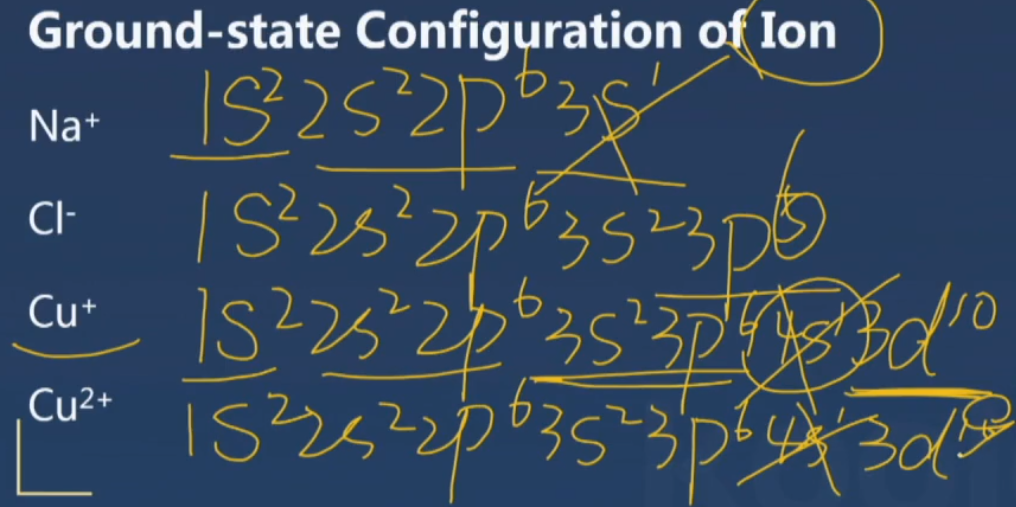 Ground-state Configuration of Ion
Na⁺ 1s² 2s² 2p⁶ 3s¹
Cl⁻ 1s² 2s² 2p⁶ 3s² 3p⁶
Cu⁺ 1s² 2s² 2p⁶ 3s² 3p⁶ 4s¹ 3d¹⁰
Cu²⁺ 1s² 2s² 2p⁶ 3s² 3p⁶ 4s¹ 3d